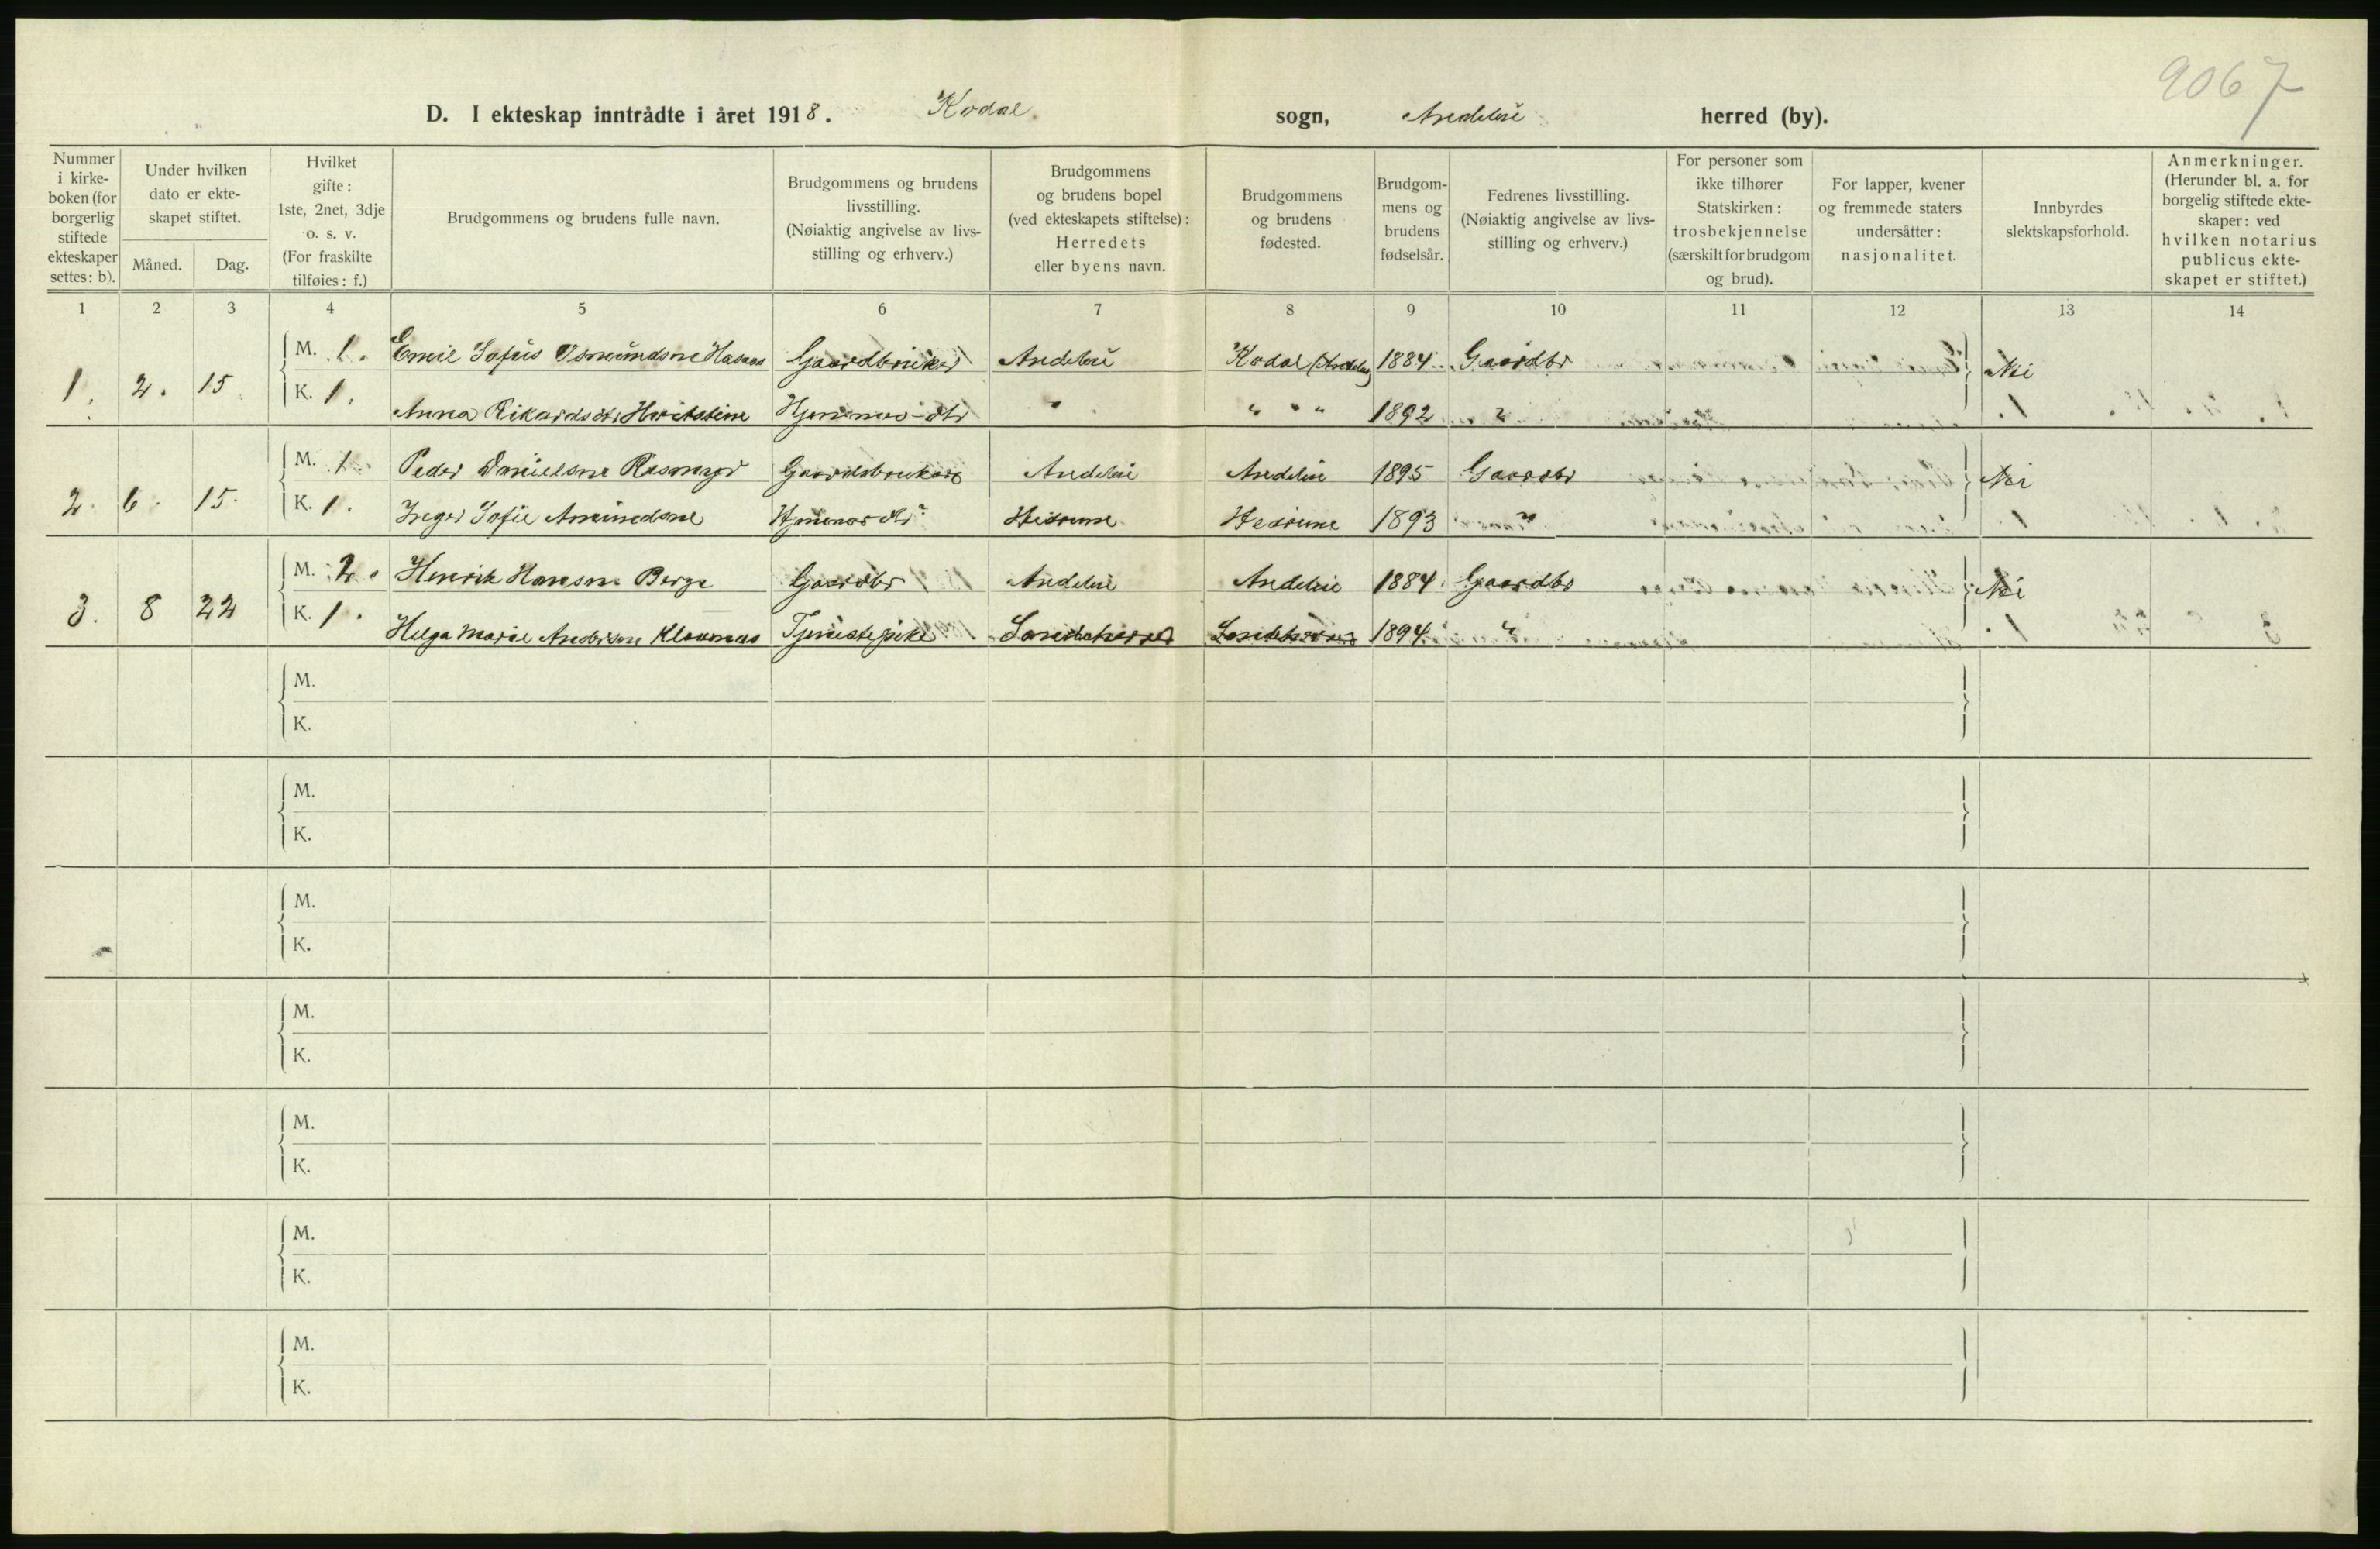 9067
D. I ekteskap inntrådte i året 1918. Kodal sogn, Andebu herred (by).
Nummer i kirkeboken (for borgerlig stiftede ekteskaper settes: b).
Under hvilken dato er ekteskapet stiftet.
Måned. Dag.
Hvilket gifte: 1ste, 2net, 3dje o. s. v. (For fraskilte tilføies: f.)
Brudgommens og brudens fulle navn.
Brudgommens og brudens livsstilling. (Nøiaktig angivelse av livsstilling og erhverv.)
Brudgommens og brudens bopel (ved ekteskapets stiftelse): Herredets eller byens navn.
Brudgommens og brudens fødested.
Brudgommens og brudens fødselsår.
Fedrenes livsstilling. (Nøiaktig angivelse av livsstilling og erhverv.)
For personer som ikke tilhører Statskirken: trosbekjennelse (særskilt for brudgom og brud).
For lapper, kvener og fremmede staters undersåtter: nasjonalitet.
Innbyrdes slektskapsforhold.
Anmerkninger. (Herunder bl. a. for borgelig stiftede ekteskaper: ved hvilken notarius publicus ekteskapet er stiftet.)
1 2 3 4 5 6 7 8 9 10 11 12 13 14
1. 2. 15 M. 1. Emil Sofus Gaardbruker Andebu Kodal (Andebu) 1884 Gaardbr Nei
K. 1. Anna Hjemmev. dtr " " " " 1892 "
2. 6. 15. M. 1. Peder Danielsne Gaardsbruker Andebu Andebu 1895 Gaardbr Nei
K. 1. Inger Sofie Amundsne Hedrum Hedrum 1893 "
3. 8 22 M. 2. Henrik Hansne Berge Gaardbr Andebu Andebu 1884 Gaardbr Nei
K. 1. Helga Marie Tjenestepike Sandeherred Sandeherred 1894 "
M.
K.
M.
K.
M.
K.
M.
K.
M.
K.
M.
K.
M.
K.